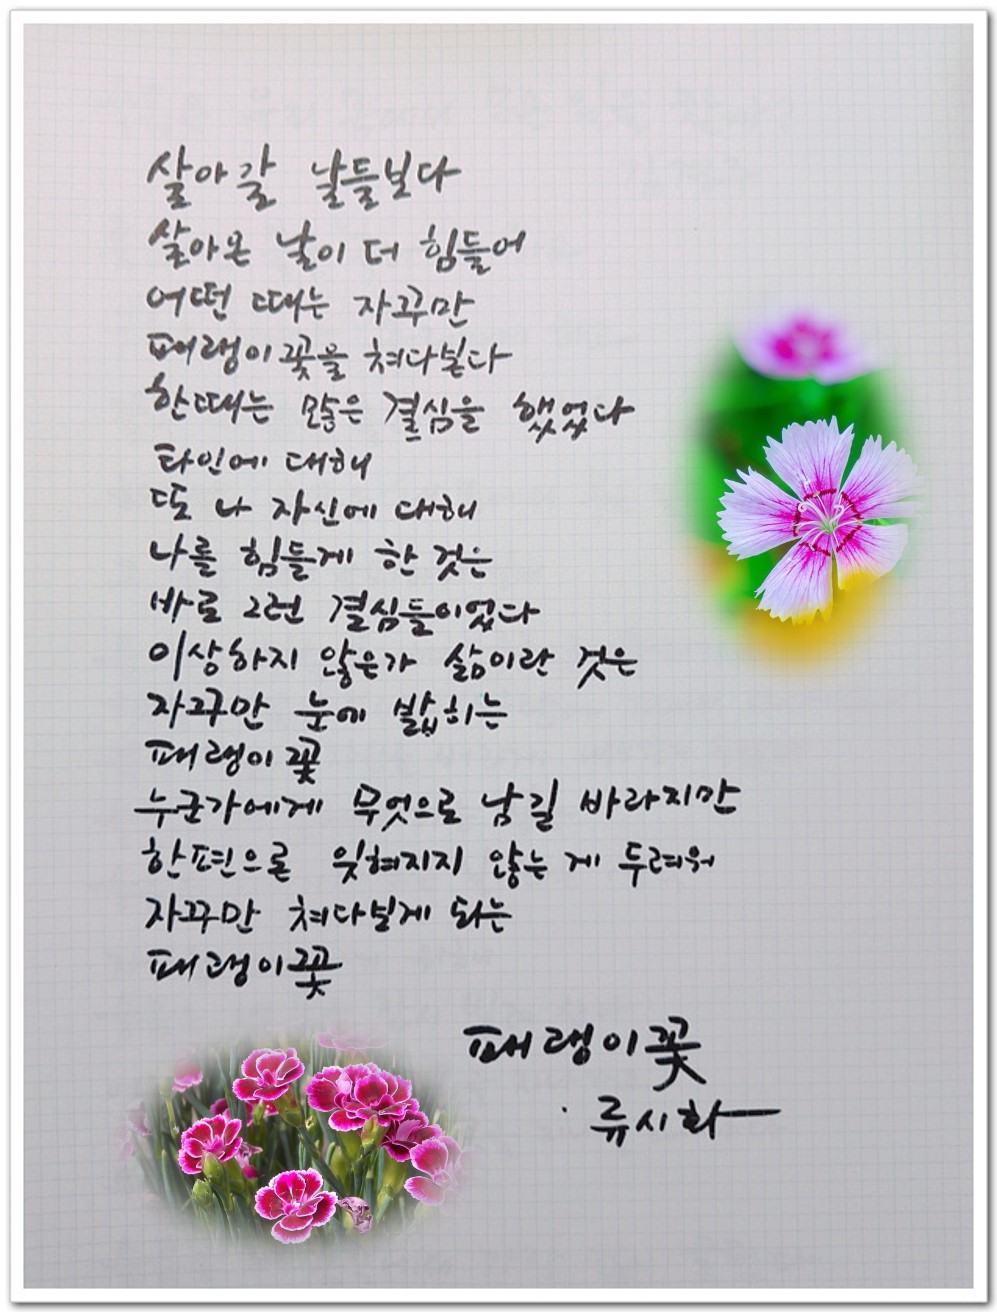 살아갈 날들보다
살아온 날이 더 힘들어
어떤 때는 자꾸만
패랭이꽃을 쳐다본다
한때는 많은 결심을 했었다
타인에 대해
또 나 자신에 대해
나를 힘들게 한 것은
바로 그런 결심들이었다
이상하지 않은가 삶이란 것은
자꾸만 눈에 밟히는
패랭이꽃
누군가에게 무엇으로 남길 바라지만
한편으론 잊혀지지 않는 게 두려워
자꾸만 쳐다보게 되는
패랭이꽃
패랭이꽃
· 류시화